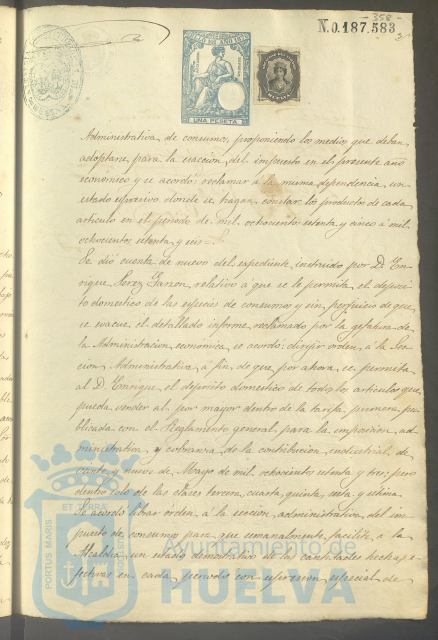 358
N.0.187.583
UNA PESETA
Administrativa de consumos, proponiendo los medios que deban
adoptarse para la exaccion del impuesto en el presente año
económico y se acordó: reclamar á la misma dependencia un
estado espresivo donde se hagan constar los productos de cada
articulo en el periodo de mil ochocientos setenta y cinco á mil
ochocientos setenta y seis.
Se dió cuenta de nuevo del espediente instruido por D. En-
rique Perez Garzon, relativo a que se le permita el deposi-
to domestico de las especies de consumos y sin perjuicio de que
se evacue el detallado informe reclamado por la gefatura de
la Administracion económica se acordo: dirijir orden á la Sec-
cion Administrativa á fin de que por ahora se permita
al D. Enrique el depósito domestico de todos los articulos que
pueda vender al por mayor dentro de la tarifa primera pu-
blicada con el Reglamento general para la imposicion, ad-
ministrativa y cobranza de la contribucion industrial de
veinte y nueve de Mayo de mil ochocientos setenta y tres: pero
dentro solo de las clases tercera, cuarta, quinta, sesta y sétima.
Se acordó librar orden á la seccion administrativa del im-
puesto de consumos para que semanalmente facilite á la
Alcaldia un estado demostrativo de las cantidades hechas e-
fectivas en cada periodo con espresion especial de
PORTUS MARIS
ET TERRÆ
Ayuntamiento de
HUELVA